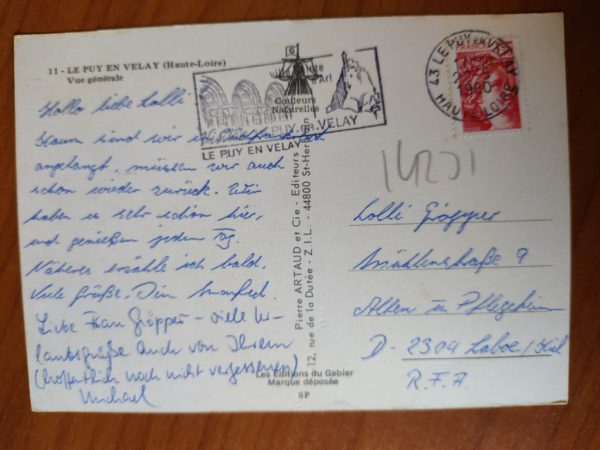 11 - LE PUY EN VELAY (Haute-Loire)
Vue générale
Couleurs
Naturelles
LE PUY EN VELAY
LE PUY EN VELAY
43 LE PUY EN VELAY
HAUTE LOIRE
Hallo liebe Lolli
Kaum sind wir in
angelangt, müssen wir auch
schon wieder zurück. Wir
haben es sehr schön hier,
und genießen jeden Tag.
Näheres erzähle ich bald.
Viele Grüße, Dein Manfred.
Liebe Frau Gröpper - viele Ur-
laubsgrüße auch von Ihrem
(hoffentlich noch nicht vergessenen)
Michael
Pierre ARTAUD et Cie - Editeurs
12, rue de la Dutée - Z.I.L. - 44800 St-Herblain
Les Editions du Gabier
Marque déposée
SP
Lolli Gröpper
Mühlenstraße 9
Alten u Pflegeheim
D - 2304 Laboe/Kiel
R.F.A.